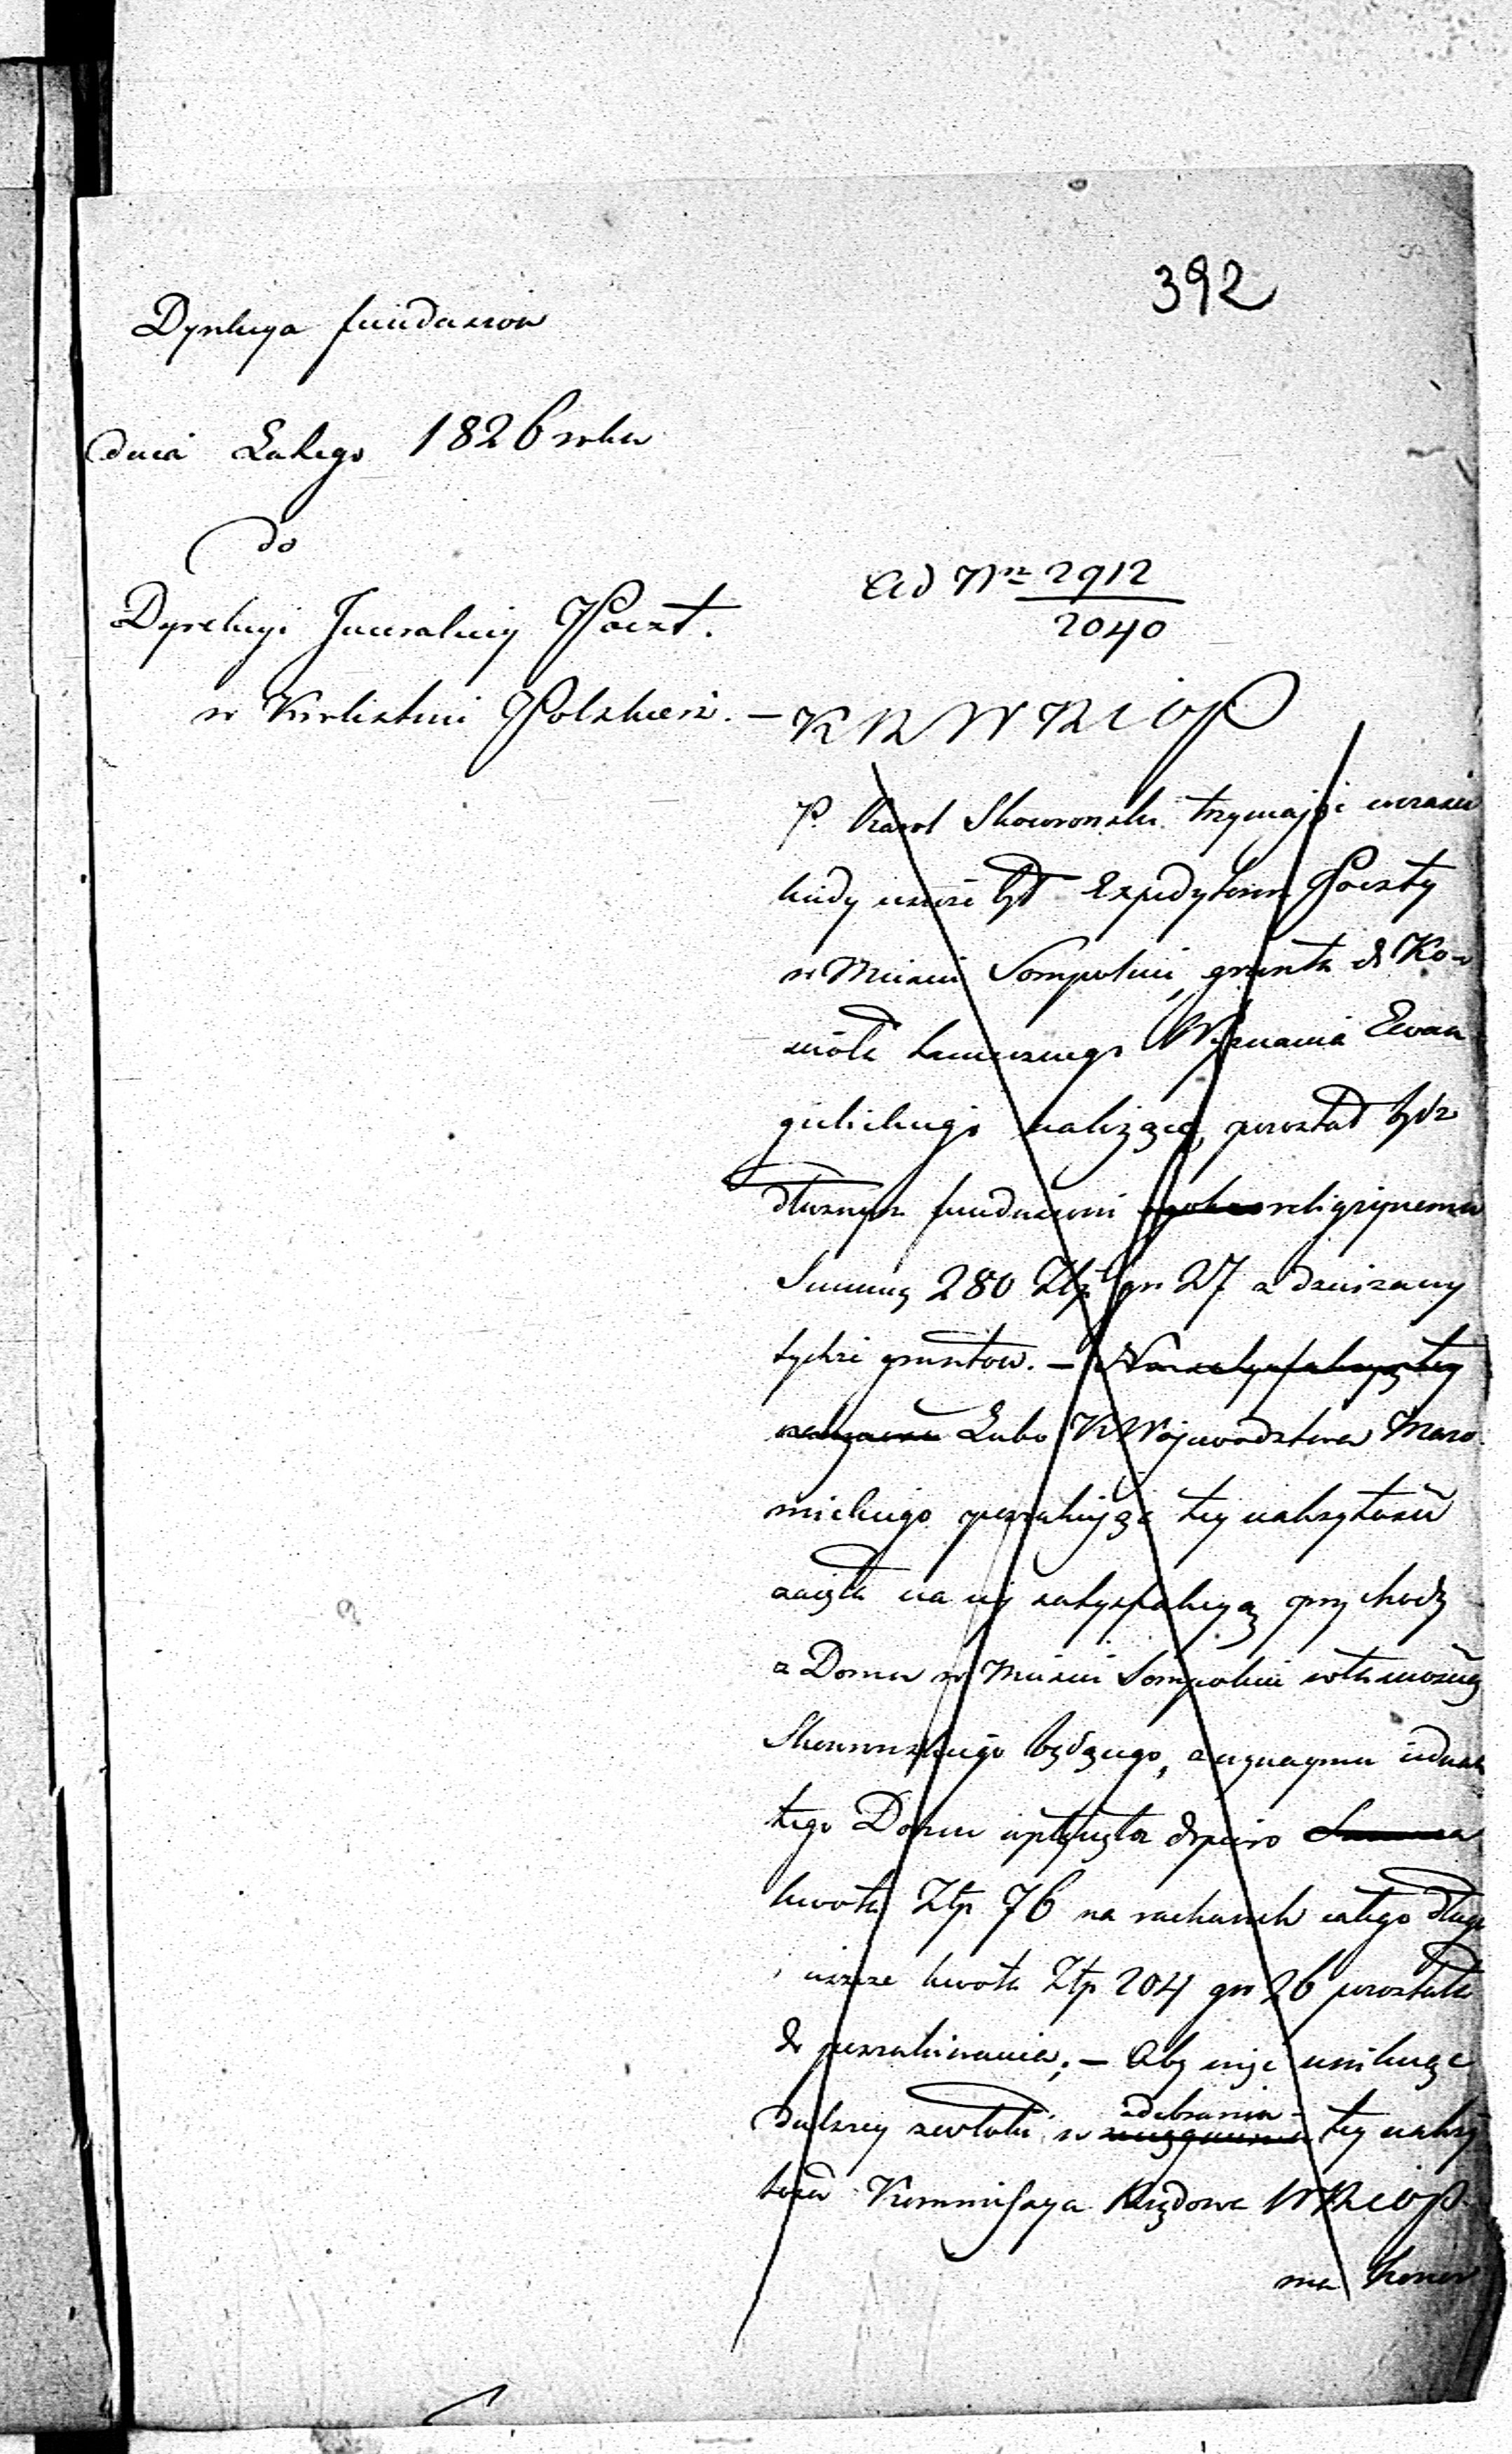 392
Dyrekcya funduszow
dnia Lutego 1826 roku
do
Dyrekcyi Jeneralney Poczt.
w Krolestwie Polskiem. –
Ad Nr 2912
2040
K R W R i O P
P. Karol Skowronski trzymaiąc w czasie
kiedy ieszcze był Expedytorem Poczty
w Miescie Sompolnie, grunta do Ko-
scioła tamecznego Wyznania Ewan-
gielickiego należące, pozostał bydz
dłużnym funduszowi religiynemu
Summę 280 Złp gr 27 z dzierzawy
tychże gruntow. –
Lubo K Wojewodztwa Mazo-
wieckiego poszukuiąc tey należytości
zaięła na iey satysfakcyą przychody
z Domu w Miescie Sompolnie własnością
Skowronskiego będącego, z czynszu iednak
tego Domu wpłynęła dopiero Summa
kwota Złp 76 na rachunek całego długu
ieszcze kwota Złp 204 gr 26 pozostała
do poszukiwania. – Aby więc uniknąć
dalszey zwłoki w odebraniu tey należy
tosci Kommissya Rządowa W R i O P.
ma honor